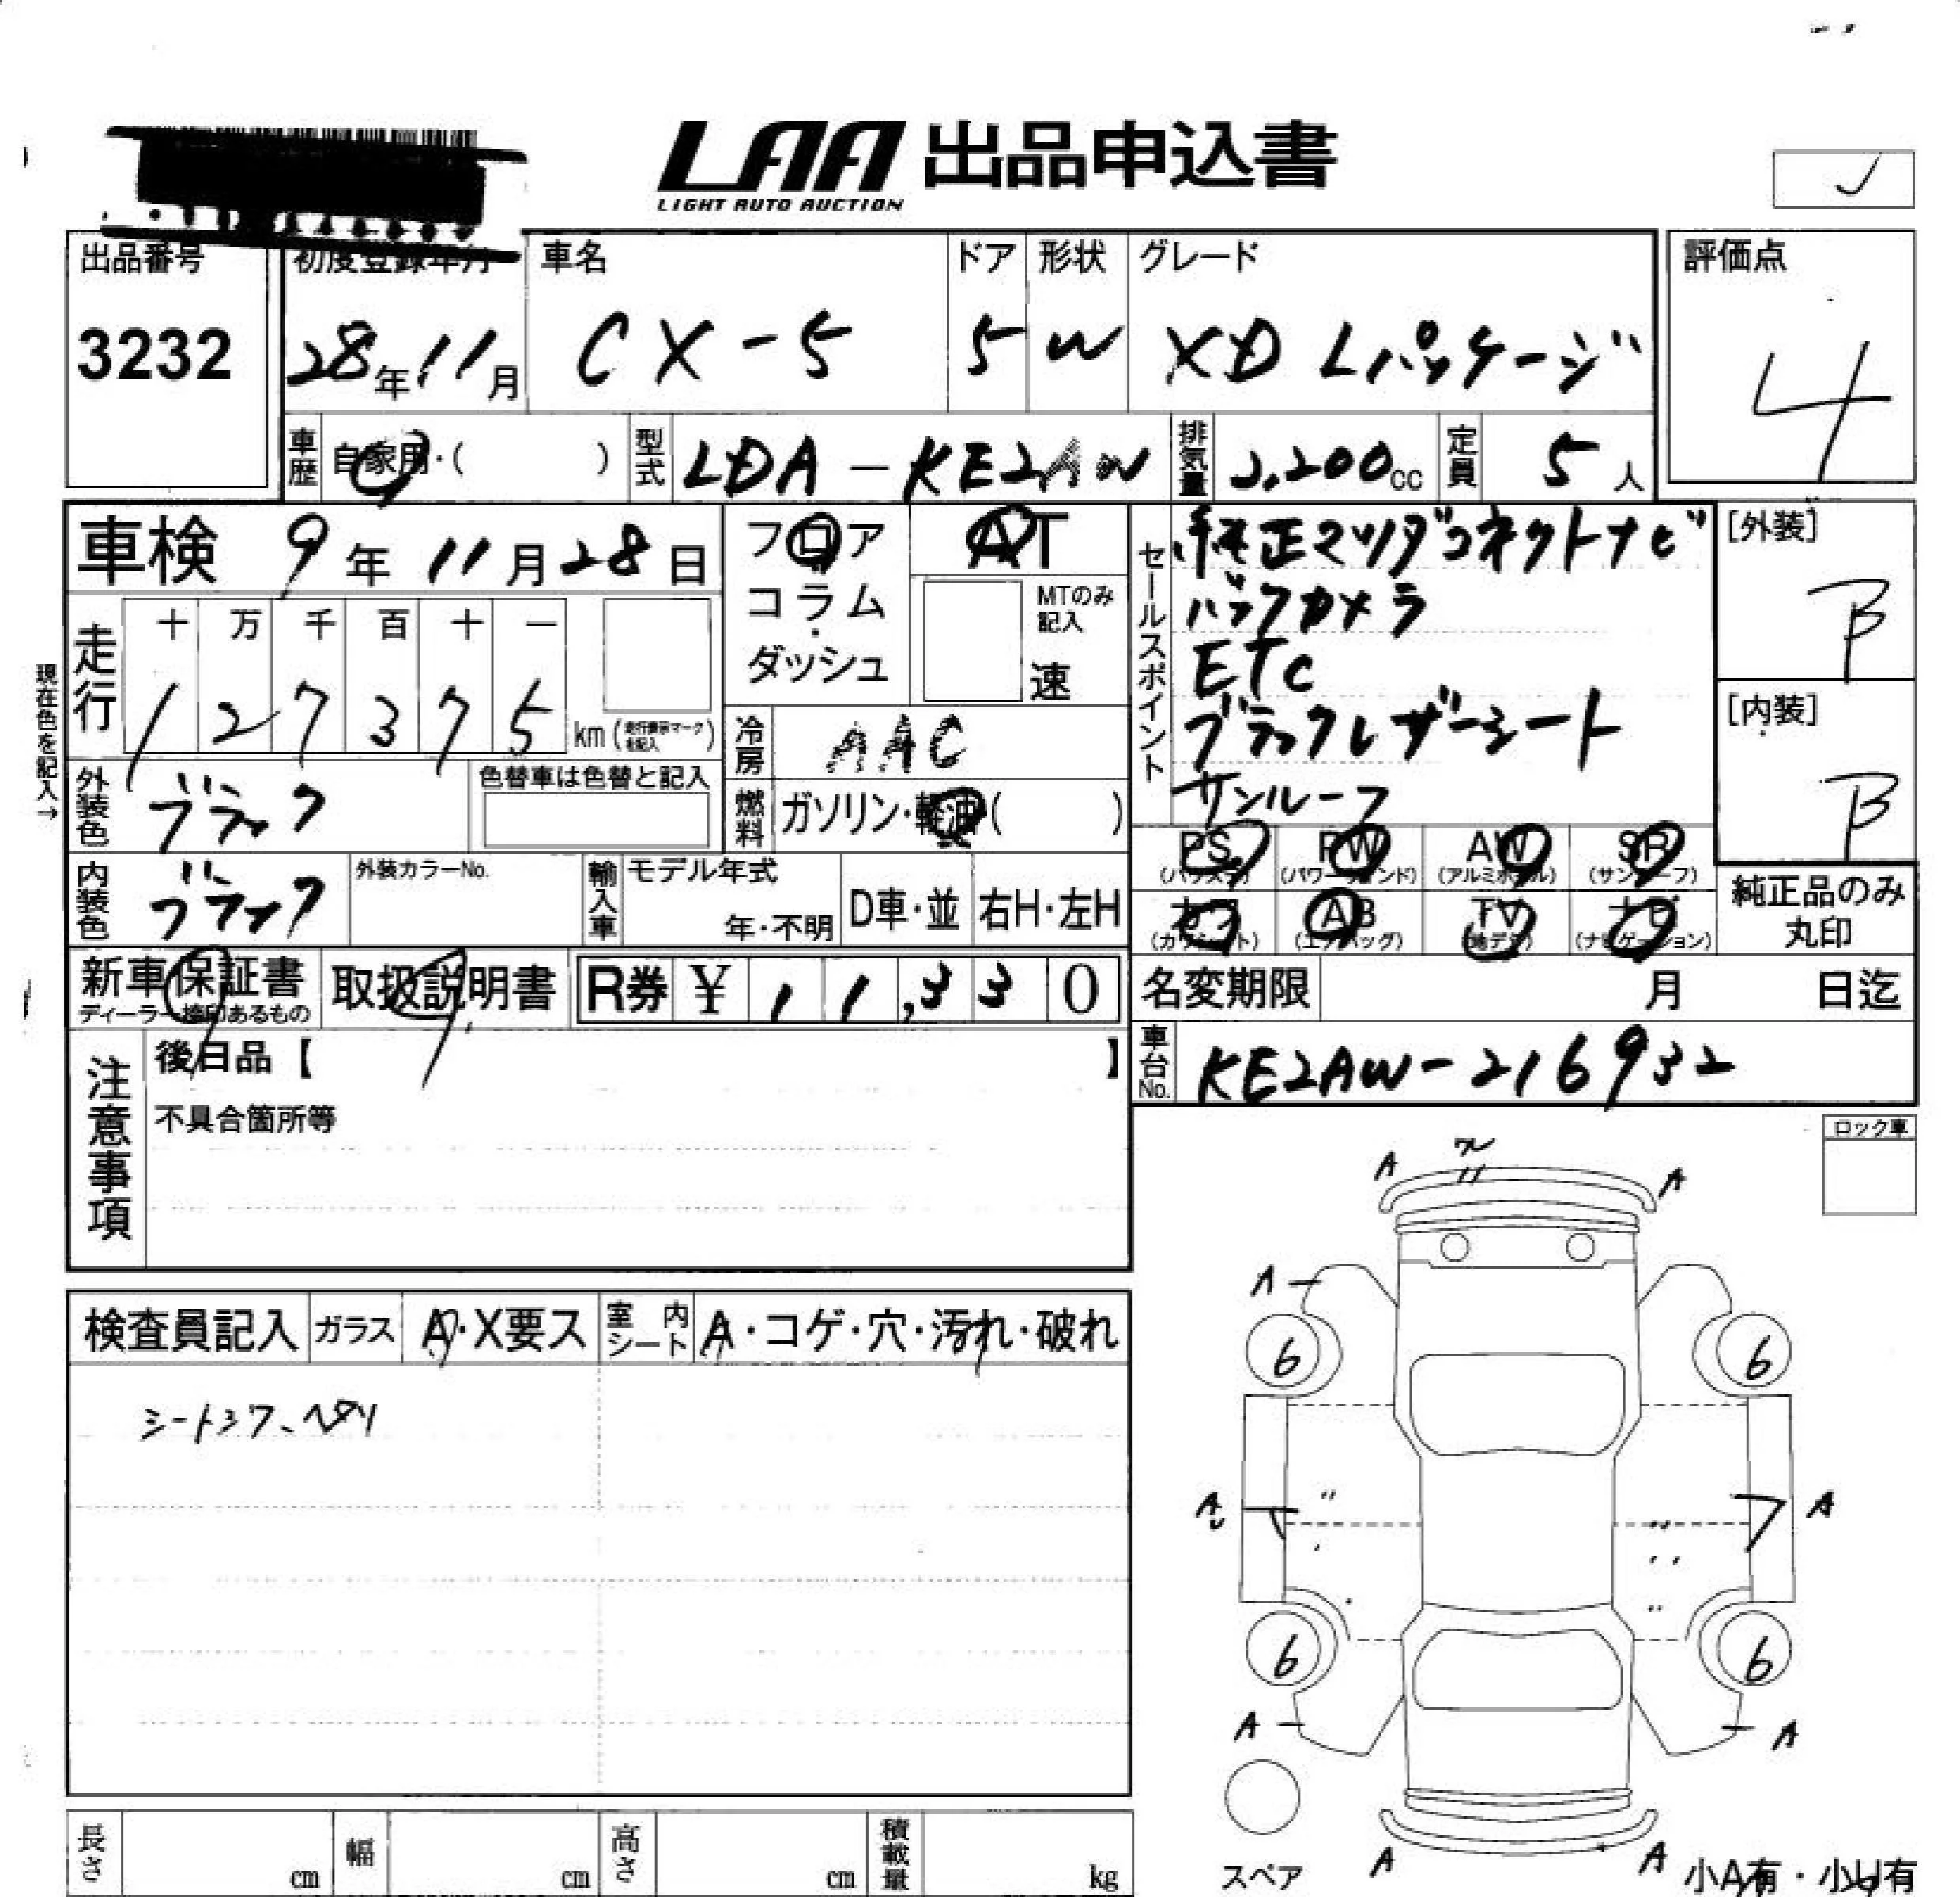 LAA 出品申込書
LIGHT AUTO AUCTION
出品番号
3232
初度登録年月
28年11月
車名
CX-5
ドア
5
形状
W
グレード
XD Lパッケージ
評価点
4
車歴 自家用・( )
型式 LDA-KE2AW
排気量 2,200cc
定員 5人
車検 9年11月28日
フロア
コラム
・
ダッシュ
AT
MTのみ記入
速
セールスポイント
純正マツダコネクトナビ
バックカメラ
ETC
ブラックレザーシート
サンルーフ
[外装]
B
[内装]
B
現在色を記入→
走行
十 万 千 百 十 一
1 2 7 3 7 5 km
冷房 AAC
外装色 ブラック
色替車は色替と記入
燃料 ガソリン・軽油( )
内装色 ブラック
外装カラーNo.
輸入車
モデル年式
年・不明
D車・並
右H・左H
PS PW AW SR
(パワステ) (パワーウインド) (アルミホイル) (サンルーフ)
カワ AB TV ナビ
(カワシート) (エアバッグ) (地デジ) (ナビゲーション)
純正品のみ
丸印
新車保証書
ディーラー捺印あるもの
取扱説明書
R券 ¥ 11,330
名変期限 月 日迄
注意事項
後日品【 】
不具合箇所等
車台No. KE2AW-216932
ロック車
検査員記入
ガラス A・X要ス
室内シート A・コゲ・穴・汚れ・破れ
シートシワ、ヘタリ
A
A
A
6
6
A
A
6
6
A
A
A
A
スペア
小A有・小U有
長さ cm
幅 cm
高さ cm
積載量 kg